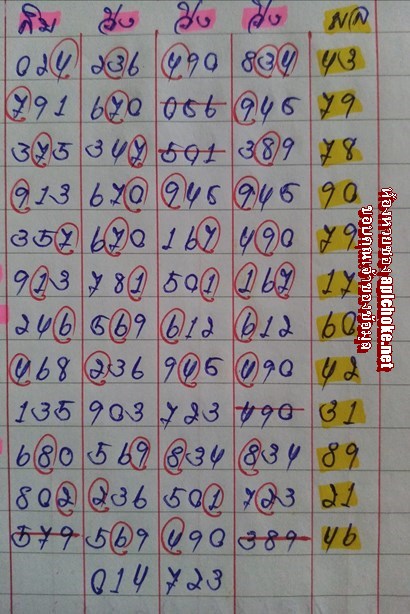 ลิม วิ่ง วิ่ง วิ่ง ผล
024 236 490 834 43
791 670 056 945 79
375 347 501 389 78
913 670 945 945 90
357 670 167 490 79
913 781 501 167 17
246 569 612 612 60
468 236 945 490 42
135 903 723 490 31
680 569 834 834 89
802 236 501 723 21
579 569 490 389 46
014 723
ห้องหวยซอง aplchoke.net
ขอบคุณเจ้าของข้อมูล